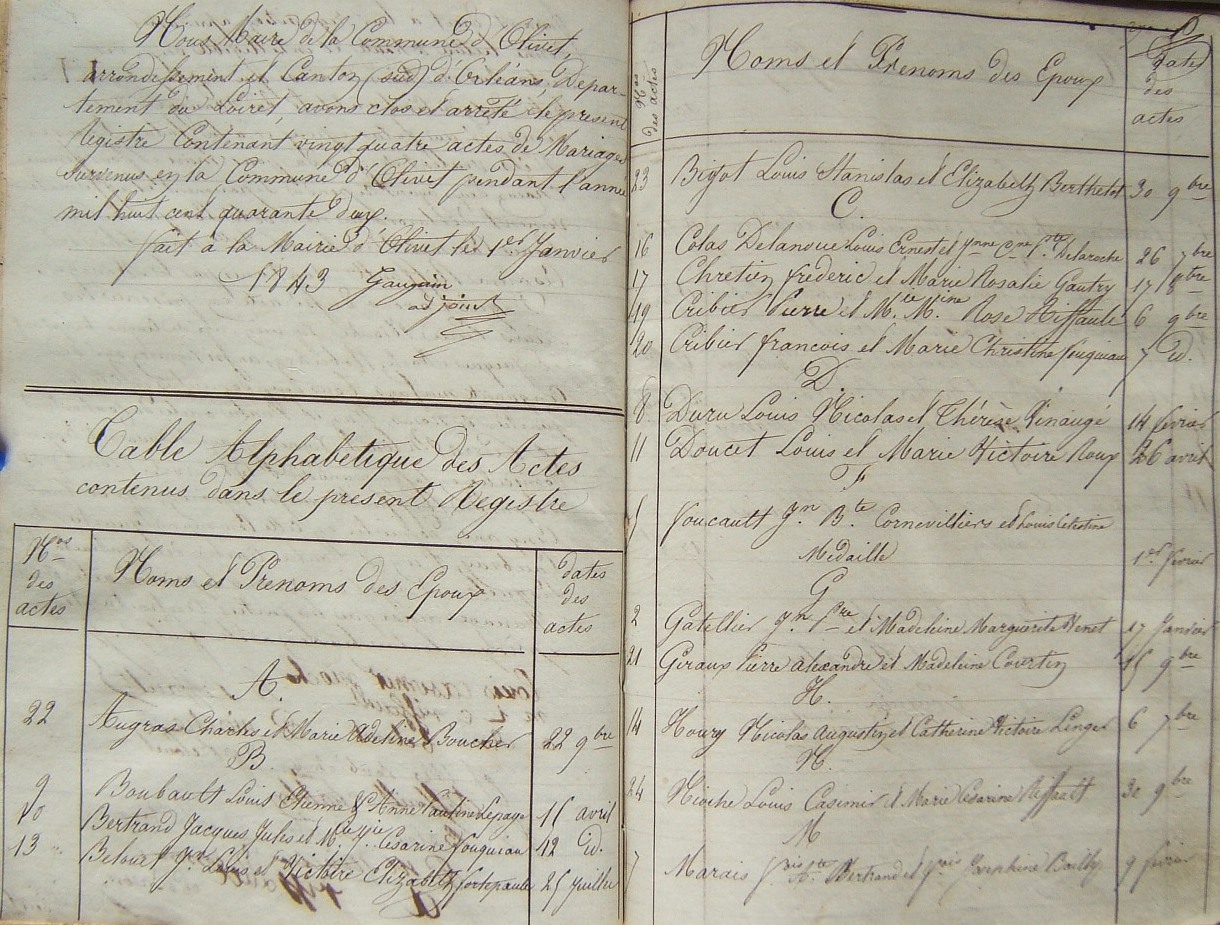 Nous Maire de la Commune d'Olivet,
arrondissement et Canton (sud) d'Orléans, Depar-
tement du Loiret, avons clos et arrêté le present
Registre Contenant vingt quatre actes de Mariages
survenus en la Commune d'Olivet pendant l'année
mil huit cent quarante deux.
fait à la Mairie d'Olivet le 1er Janvier
1843
adjoint
Table Alphabetique des Actes
contenus dans le present Registre
Nos des actes Noms et Prenoms des Epoux dates des actes
A.
22 Augras Charles et Marie Adeline Boucher 22 9bre
B.
9 Boubault Louis Etienne & Anne Pauline Lepage 15 avril
10 Bertrand Jacques Jules et Césarine fouqueau 12 id.
13 Louis et Victoire Elizabeth 25 Juillet
Nos des actes Noms et Prenoms des Epoux dates des actes
23 Bigot Louis Stanislas et Elizabeth Berthelot 30 9bre
C.
16 Colas Delanoue Louis Ernest et Jnne Delaroche 26 7bre
17 Chretien frederic et Marie Rosalie Gautry 17 8bre
19 Cribier Pierre et Rose Riffault 6 9bre
20 Cribier francois et Marie Christine fouqueau 7 id.
D.
8 Duru Louis Nicolas et Thérèse Pinaugé 14 fevrier
11 Doucet Louis et Marie Victoire Roux 26 avril
F
5 foucault Jn Bte Cornevilliers et Louise Celestine
Medaille 1er fevrier
G
2 Gatellier Jn Pre et Madeleine Marguerite Venet 17 Janvier
21 Geraux Pierre alexandre et Madeleine Courtin 15 9bre
H.
14 Houry Nicolas Augustin et Catherine Victoire Linger 6 7bre
24 Hioche Louis Casimir et Marie Cesarine Riffault 30 9bre
M
7 Marais Bertrand et Josephine Bailly 9 fevrier